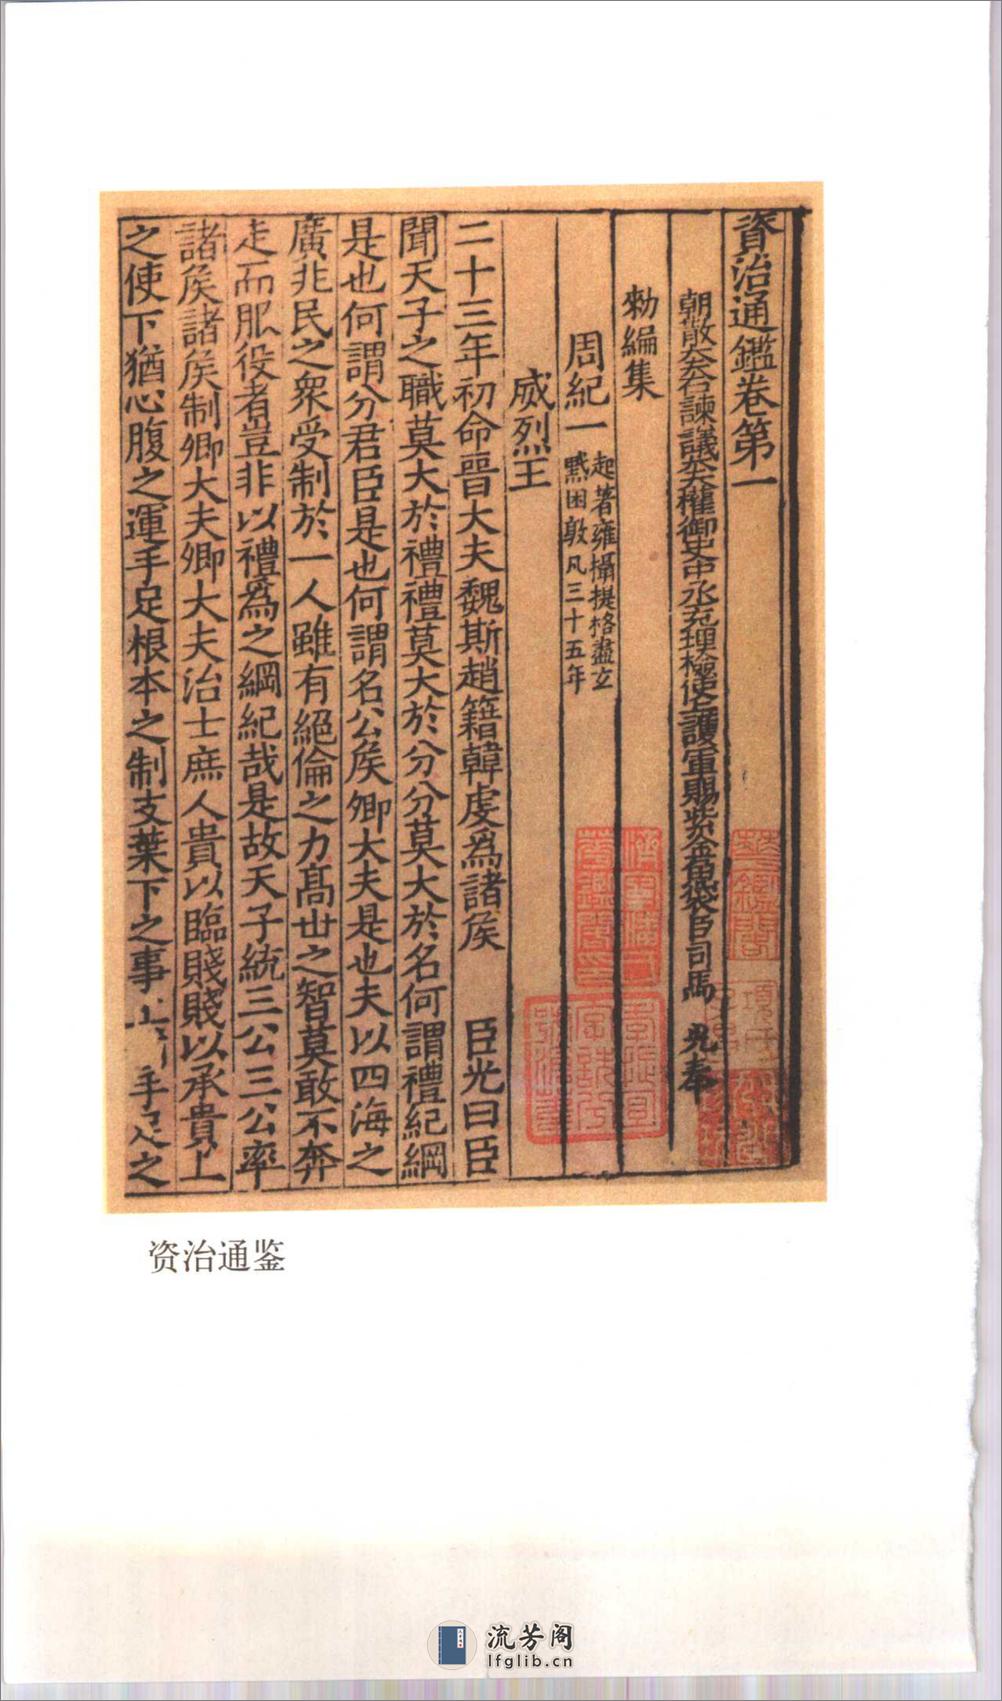 資治通鑑卷第一
朝散大夫右諫議大夫權御史中丞充理檢使上護軍賜紫金魚袋臣司馬光奉
勑編集
周紀一
起著雍攝提格盡玄
黓困敦凡三十五年
威烈王
二十三年初命晉大夫魏斯趙籍韓虔爲諸侯 臣光曰臣
聞天子之職莫大於禮禮莫大於分分莫大於名何謂禮紀綱
是也何謂分君臣是也何謂名公侯卿大夫是也夫以四海之
廣兆民之衆受制於一人雖有絕倫之力髙世之智莫敢不奔
走而服役者豈非以禮爲之綱紀哉是故天子統三公三公率
諸侯諸侯制卿大夫卿大夫治士庶人貴以臨賤賤以承貴上
之使下猶心腹之運手足根本之制支葉下之事上 手足之
资治通鉴
流芳阁
lfglib.cn